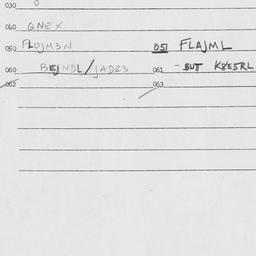 030 0
040 QNEX
050 FLOJM3N 051 FLAJML
060 BEJNDL/JAD23 061 - BUT K8E5RL
062 063